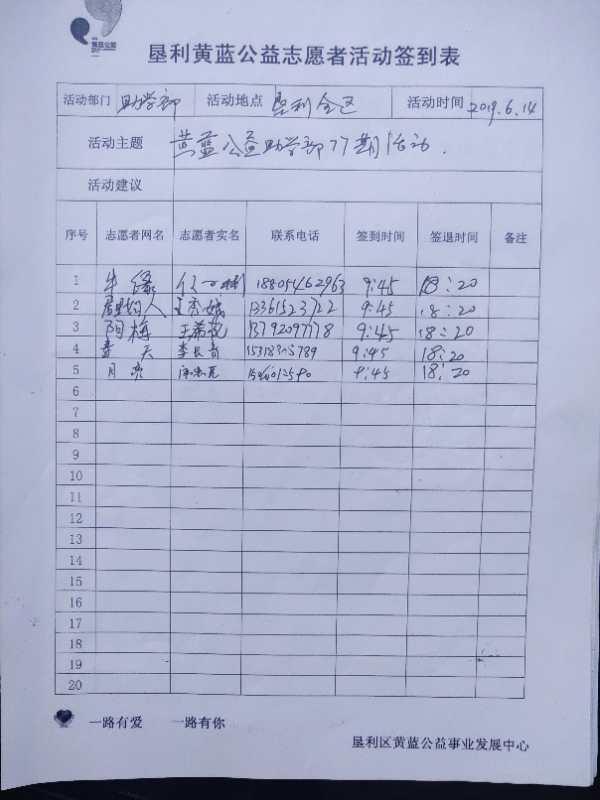 黄蓝公益
垦利黄蓝公益志愿者活动签到表
活动部门 助学部 活动地点 垦利全区 活动时间 2019.6.14
活动主题 黄蓝公益助学部77期活动.
活动建议
序号 志愿者网名 志愿者实名 联系电话 签到时间 签退时间 备注
1 牛缘 18805462963 9:45 18:20
2 王秀娥 13361523722 9:45 18:20
3 阳梅 王希花 13792097778 9:45 18:20
4 李长青 9:45 18:20
5 月亮 9:45 18:20
6
7
8
9
10
11
12
13
14
15
16
17
18
19
20
一路有爱 一路有你
垦利区黄蓝公益事业发展中心